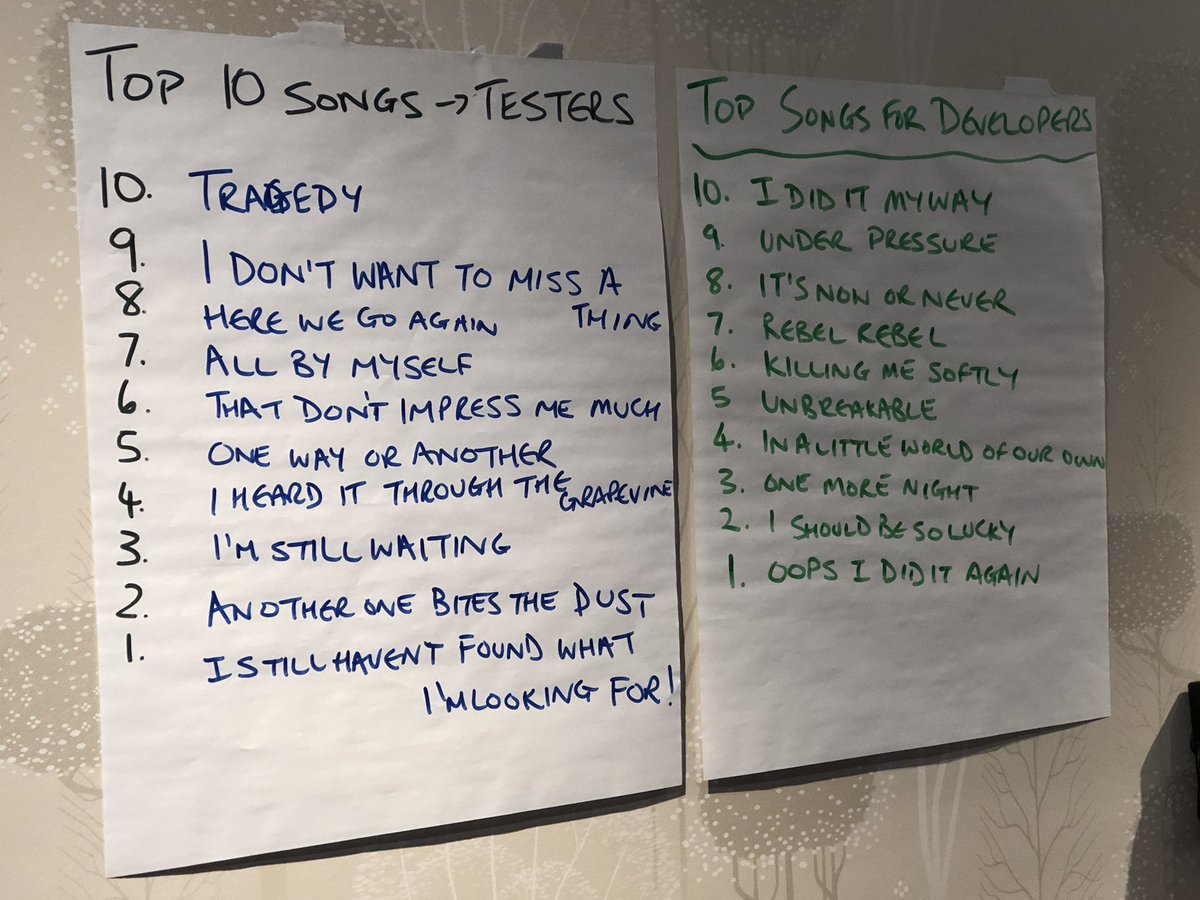 TOP 10 SONGS → TESTERS
10. TRAGEDY
9. I DON'T WANT TO MISS A
THING
8. HERE WE GO AGAIN
7. ALL BY MYSELF
6. THAT DON'T IMPRESS ME MUCH
5. ONE WAY OR ANOTHER
4. I HEARD IT THROUGH THE
GRAPEVINE
3. I'M STILL WAITING
2. ANOTHER ONE BITES THE DUST
1. I STILL HAVENT FOUND WHAT
I'M LOOKING FOR!
TOP SONGS FOR DEVELOPERS
10. I DID IT MY WAY
9. UNDER PRESSURE
8. IT'S NOW OR NEVER
7. REBEL REBEL
6. KILLING ME SOFTLY
5 UNBREAKABLE
4. IN A LITTLE WORLD OF OUR OWN
3. ONE MORE NIGHT
2. I SHOULD BE SO LUCKY
1. OOPS I DID IT AGAIN